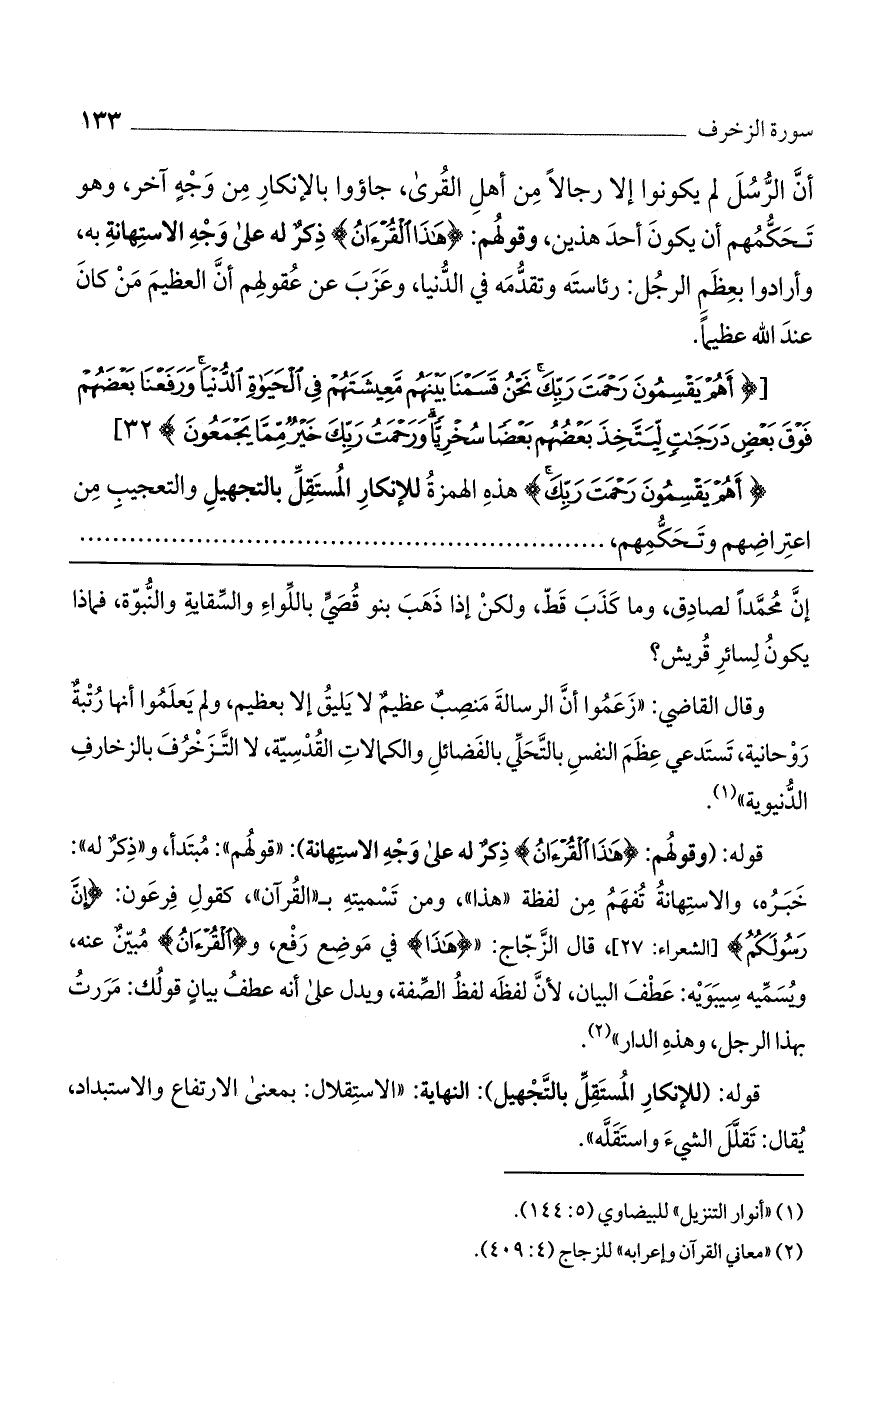 سورة الزخرف ــــــــــــــــــــ ١٣٣
أنَّ الرُّسُلَ لم يكونوا إلا رجالاً مِن أهلِ القُرىٰ، جاؤوا بالإنكارِ مِن وَجْهٍ آخر، وهو
تَـحَكُّمُهم أن يكونَ أحدَ هذين، وقولُهم: ﴿هَٰذَا ٱلْقُرْءَانُ﴾ ذِكرٌ له علىٰ وَجْهِ الاستِهانةِ به،
وأرادوا بعِظَمِ الرجُل: رئاستَه وتقدُّمَه في الدُّنيا، وعَزَبَ عن عُقولِهم أنَّ العظيمَ مَنْ كانَ
عندَ الله عظيماً.
[﴿أَهُمْ يَقْسِمُونَ رَحْمَتَ رَبِّكَ ۚ نَحْنُ قَسَمْنَا بَيْنَهُم مَّعِيشَتَهُمْ فِي ٱلْحَيَوٰةِ ٱلدُّنْيَا ۚ وَرَفَعْنَا بَعْضَهُمْ
فَوْقَ بَعْضٍ دَرَجَٰتٍ لِّيَتَّخِذَ بَعْضُهُم بَعْضًا سُخْرِيًّا ۗ وَرَحْمَتُ رَبِّكَ خَيْرٌ مِّمَّا يَجْمَعُونَ﴾ ٣٢]
﴿أَهُمْ يَقْسِمُونَ رَحْمَتَ رَبِّكَ ۚ﴾ هذهِ الهمزةُ للإنكارِ المُستَقِلِّ بالتجهيلِ والتعجيبِ مِن
اعتِراضِهم وتَـحَكُّمِهم، ................................................................
إنَّ مُحمَّداً لصادِق، وما كَذَبَ قَطّ، ولكنْ إذا ذَهَبَ بنو قُصَيٍّ باللِّواءِ والسِّقايةِ والنُّبوّة، فماذا
يكونُ لِسائرِ قُريش؟
وقال القاضي: «زَعَمُوا أنَّ الرسالةَ مَنصِبٌ عظيمٌ لا يَليقُ إلا بعظيم، ولم يَعلَمُوا أنها رُتْبةٌ
رَوْحانية، تَستَدعي عِظَمَ النفسِ بالتَّحَلّي بالفَضائلِ والكمالاتِ القُدْسِيّة، لا التَّـزَخْرُفَ بالزخارفِ
الدُّنيوية»(١).
قوله: (وقولُهم: ﴿هَٰذَا ٱلْقُرْءَانُ﴾ ذِكرٌ له علىٰ وَجْهِ الاستِهانة): «قولُهم»: مُبتَدأ، و«ذِكرٌ له»:
خَبَرُه، والاستِهانةُ تُفهَمُ مِن لفظة «هذا»، ومن تَسْميتِهِ بـ«القُرآن»، كقولِ فِرعَون: ﴿إِنَّ
رَسُولَكُمُ﴾ [الشعراء: ٢٧]، قال الزَّجّاج: «﴿هَٰذَا﴾ في مَوضِعِ رَفْع، و﴿ٱلْقُرْءَانُ﴾ مُبيِّنٌ عنه،
ويُسَمِّيه سِيبَوَيْه: عَطْفَ البيان، لأنَّ لفظَه لفظُ الصِّفة، ويدل علىٰ أنه عطفُ بيانٍ قولُك: مَرَرتُ
بهذا الرجل، وهذهِ الدار»(٢).
قوله: (للإنكارِ المُستَقِلِّ بالتَّجْهيل): النهاية: «الاستِقلال: بمعنىٰ الارتفاع والاستبداد،
يُقال: تَقلَّلَ الشيءَ واستَقَلَّه».
(١) «أنوار التنزيل» للبيضاوي (٥: ١٤٤).
(٢) «معاني القرآن وإعرابه» للزجاج (٤: ٤٠٩).